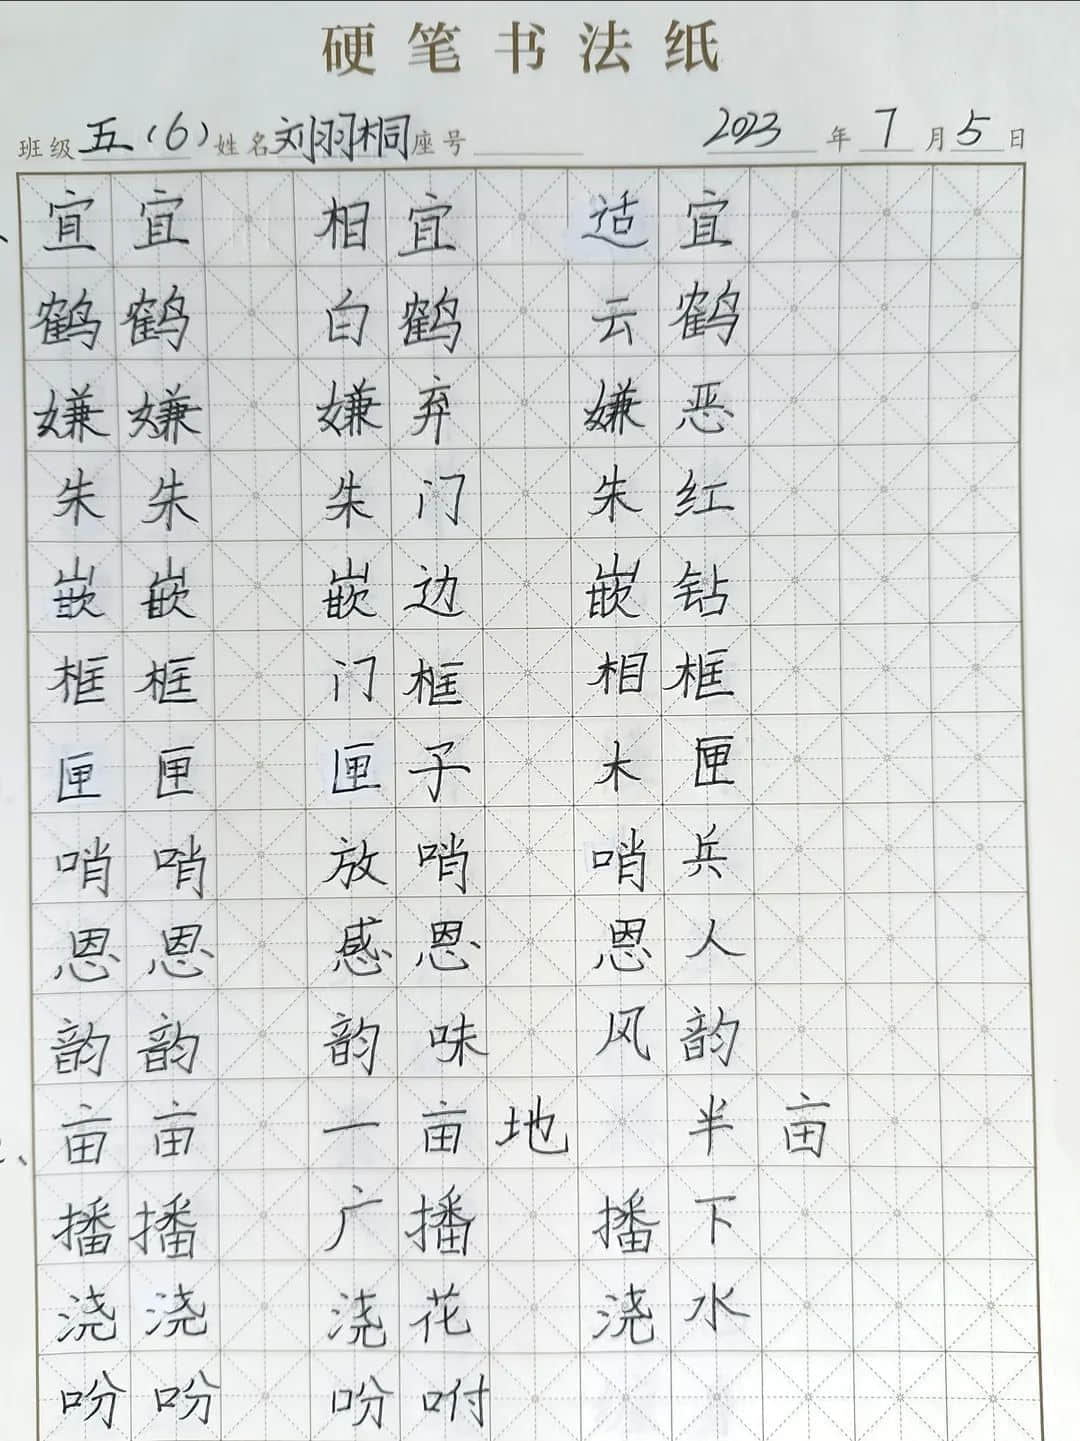 硬笔书法纸
班级 五(6) 姓名 刘羽桐 座号 2023 年 7 月 5 日
宜 宜 相宜 适宜
鹤 鹤 白鹤 云鹤
嫌 嫌 嫌弃 嫌恶
朱 朱 朱门 朱红
嵌 嵌 嵌边 嵌钻
框 框 门框 相框
匣 匣 匣子 木匣
哨 哨 放哨 哨兵
恩 恩 感恩 恩人
韵 韵 韵味 风韵
亩 亩 一亩地 半亩
播 播 广播 播下
浇 浇 浇花 浇水
吩 吩 吩咐